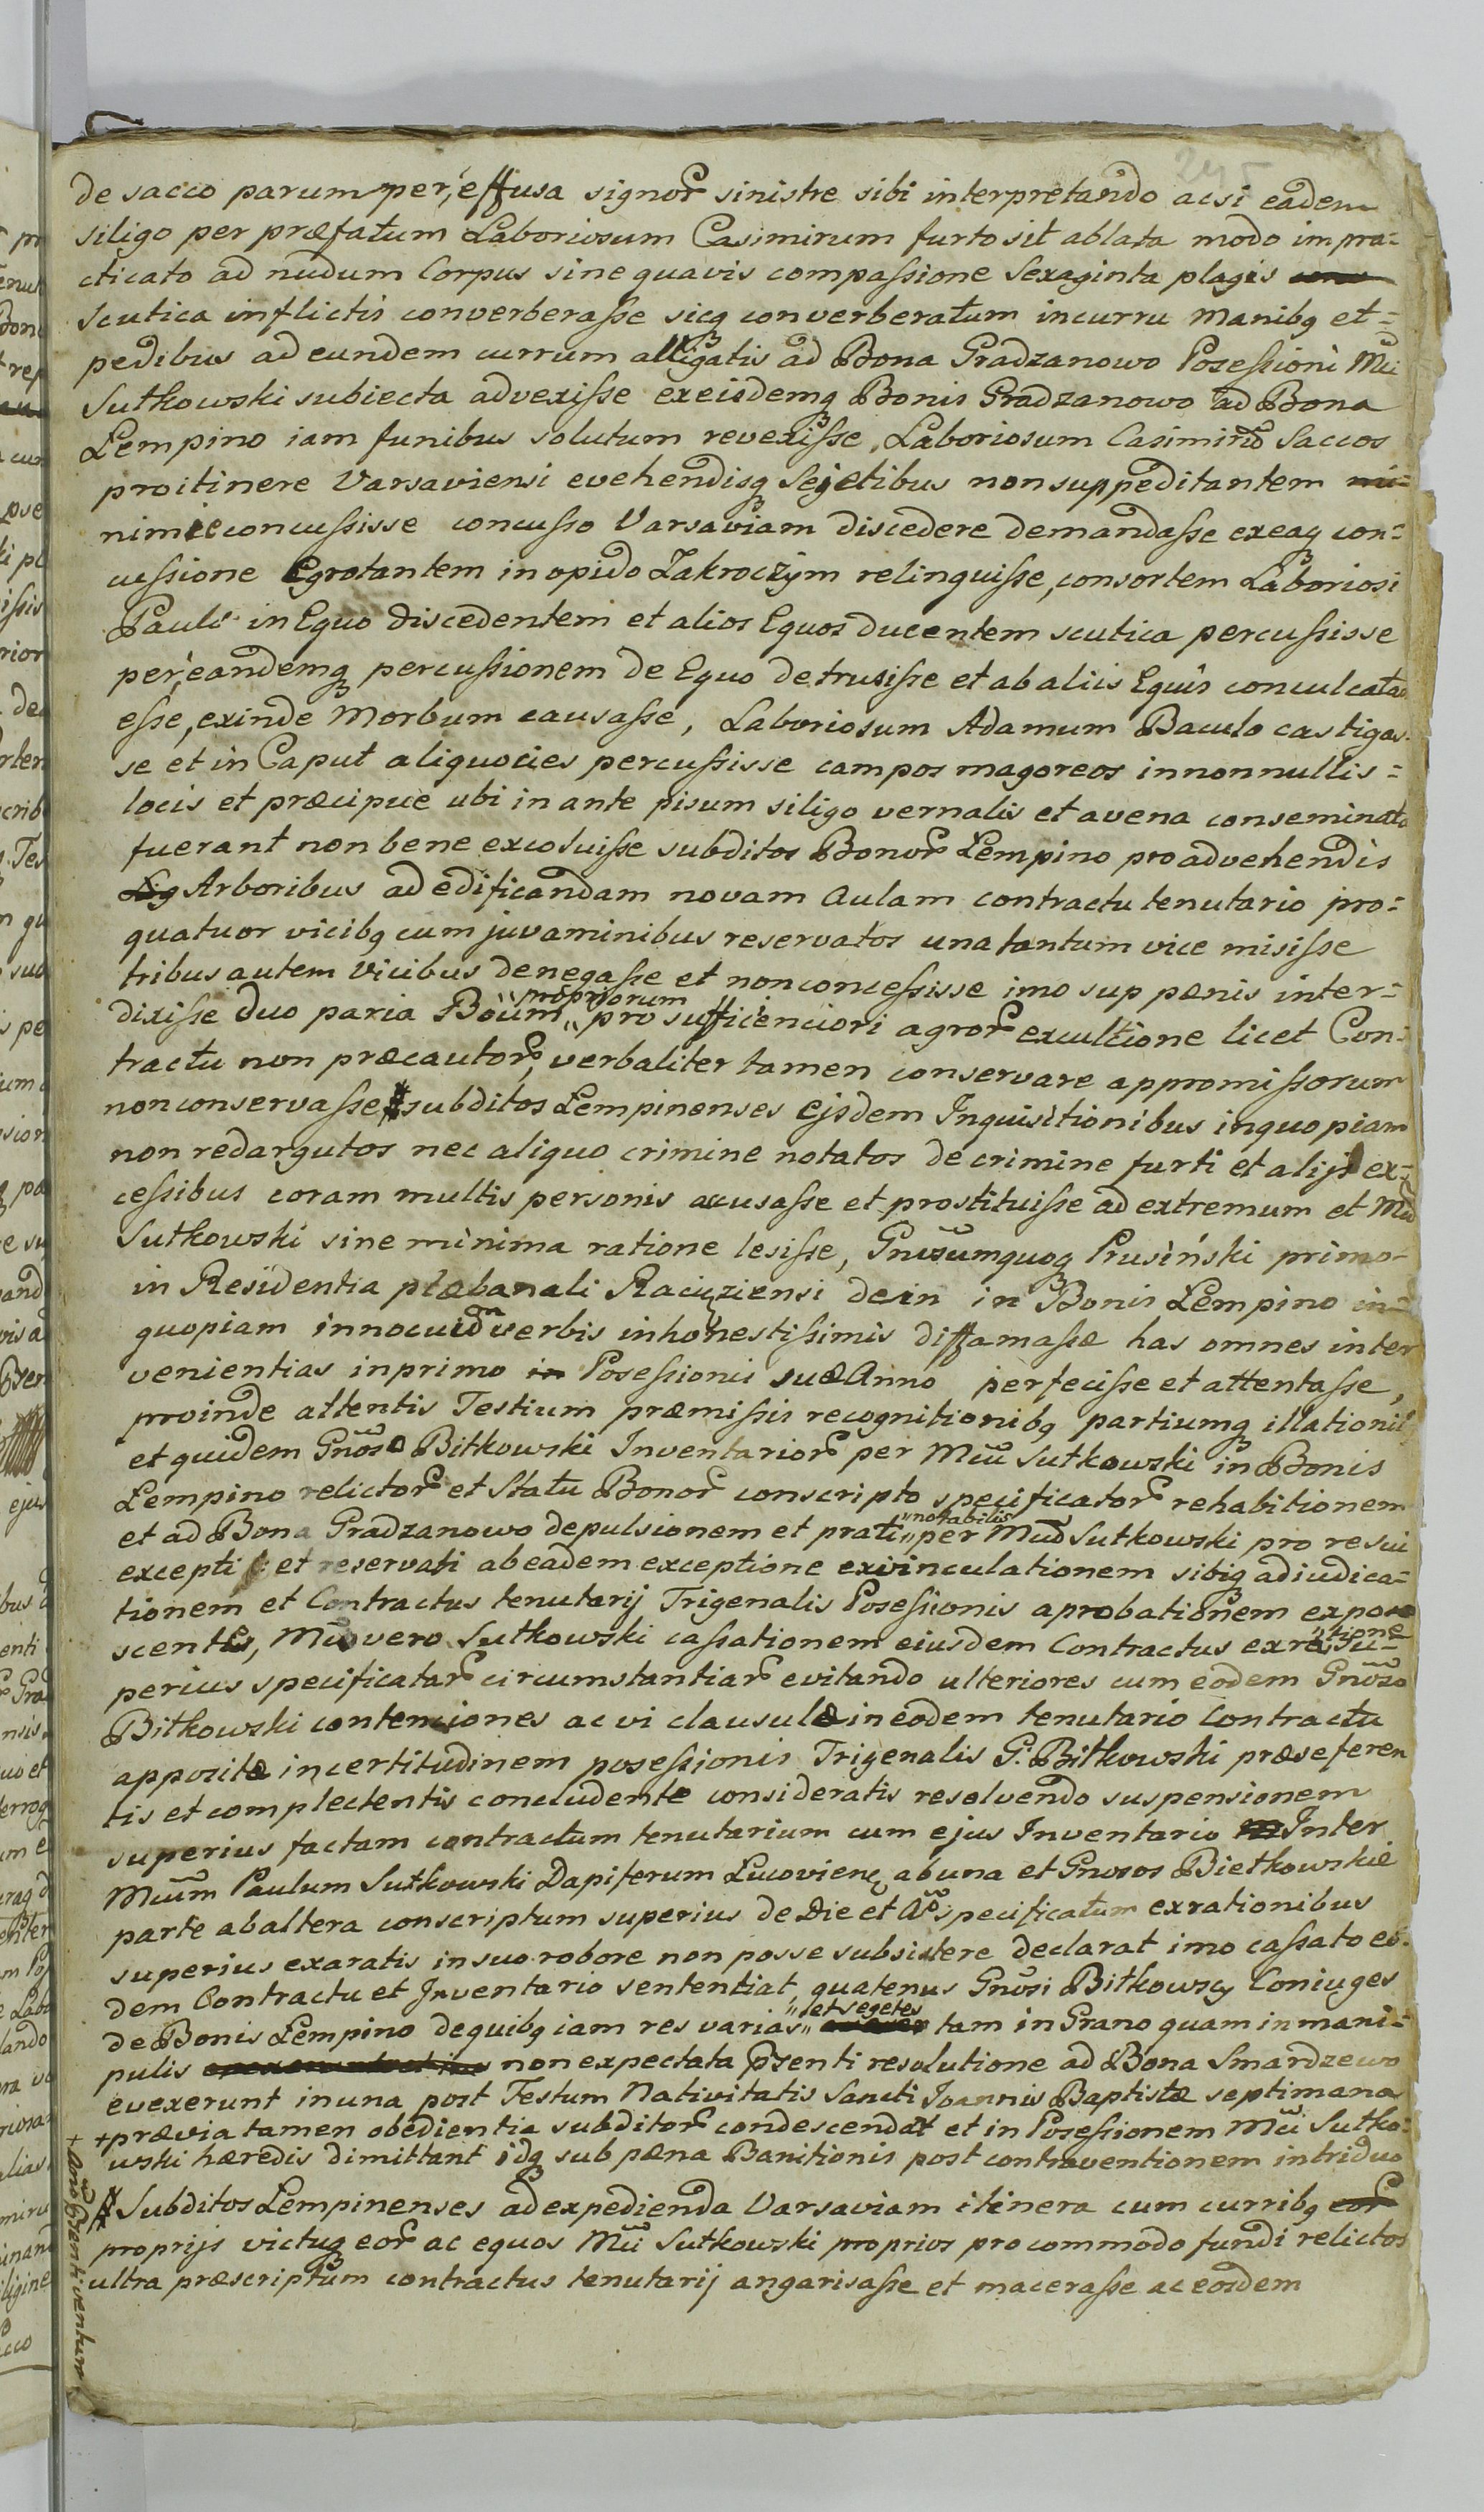 245
de sacco parum per, effusa signor sinistre sibi interpretando acsi eadem
siligo per præfatum Laboriosum Casimirum furto sit ablata modo impra=
cticato ad nudum Corpus sine quavis compaſsione Sexaginta plagis
Scutica inflictis converberaſse sicq converberatum in curru manibq et=
pedibus ad eundem currum alligatis ad Bona Gradzanowo Poseſsioni Mci
Sutkowski subiecta advexiſse ex eisdemq Bonis Gradzanowo ad Bona
Lempino iam funibus solutum revexiſse, Laboriosum Casimirũ Saccos
pro itinere Varsaviensi evehendisq Segetibus non suppeditantem mi=
nimie concuſsisse concuſso Varsaviam discedere demandaſse ex eaq con=
cuſsione Egrotantem in opido Zakroczym relinquiſse, consortem Laboriosi
Pauli in Equo discedentem et alios Equos ducentem scutica percuſsisse
per, eandemq percuſsionem de Equo detrusiſse et ab aliis Equis conculcatam
eſse, exinde Morbum causaſse, Laboriosum Adamum Baculo castigas-
se et in Caput aliquocies percuſsisse campos magoreos in nonnullis=
locis et præcipue ubi in ante pisum siligo vernalis et avena conseminata
fuerant non bene excoluiſse subditos Bonor Lempino pro advehendis
Arboribus ad edificandam novam Aulam contractu tenutario pro=
quatuor vicibq cum juvaminibus reservatos una tantum vice misiſse
tribus autem Vicibus denegaſse et non conceſsisse imo sup pænis inter=
dixiſse duo paria Boum „propriorum„ pro sufficienciori agror excultione licet Con=
tractu non præcautor, verbaliter tamen conservare appromiſsorum
non conservaſse # subditos Lempinenses ejsdem Inquisitionibus in quopiam
non redargutos nec aliquo crimine notatos de crimine furti et alijs ex=
ceſsibus coram multis personis accusaſse et prostituiſse ad extremum et Mcũ
Sutkowski sine minima ratione lesiſse, Gnosumquoq Prusiński primo-
in Residentia plæbanali Raciąziensi dein in Bonis Lempino in=
quopiam innocuum verbis inhonestiſsimis diffamaſse has omnes inter
venientias in primo Poseſsionis suæ Anno perfeciſse et attentaſse,
proinde attentis Testium præmiſsis recognitionibq partiumq illationibq
et quidem Gnoso Bitkowski Inventarior per Mcũ Sutkowski in Bonis
Lempino relictor et Statu Bonor conscripto specificator rehabitionem
et ad Bona Gradzanowo depulsionem et prati „notabilis„ per Mcũ Sutkowski pro re sui
excepti et reservati ab eadem exceptione exvinculationem sibiq adiudica=
tionem et Contractus tenutarij Trigenalis Poseſsionis aprobationem expo
scente, Mco vero Sutkowski caſsationem eiusdem Contractus ex ratione su=
perius specificatar circumstantiar evitando ulteriores cum eodem Gnoso
Bitkowski contenciones ac vi clausulæ in eodem tenutario Contractu
appositæ incertitudinem poseſsionis Trigenalis G: Bitkowski præseferen
tis et complectentis concludente consideratis resolvendo suspensionem
superius factam contractum tenutarium cum ejus Inventario Inter
Mcum Paulum Sutkowski Dapiferum Lucoviens ab una et Gnosos Bietkowskie
parte ab altera conscriptum superius de Die et Ao specificatum ex rationibus
superius exaratis in suo robore non posse subsistere declarat imo caſsato eo=
dem Contractu et Inventario sententiat, quatenus Gnosi Bitkowscy Coniuges
de Bonis Lempino de quibq iam res varias „et segetes tam in Grano quam in mani=
pulis non expectata Pſenti resolutione ad Bona Smardzewo
evexerunt in una post Festum Nativitatis Sancti Joannis Baptistæ septimana
+ prævia tamen obedientia subditor condescendãt et in Poseſsionem Mci Sutko=
wski hæredis dimittant idq sub pæna Banitionis post contraventionem in triduo
# Subditos Lempinenses ad expedienda Varsaviam itinera cum curribq
proprijs victuq eor ac equos Mci Sutkowski proprios pro commodo fundi relictos
ultra præscriptum contractus tenutarij angarisaſse et maceraſse ac eosdem
+ Ano Pſenti venturam